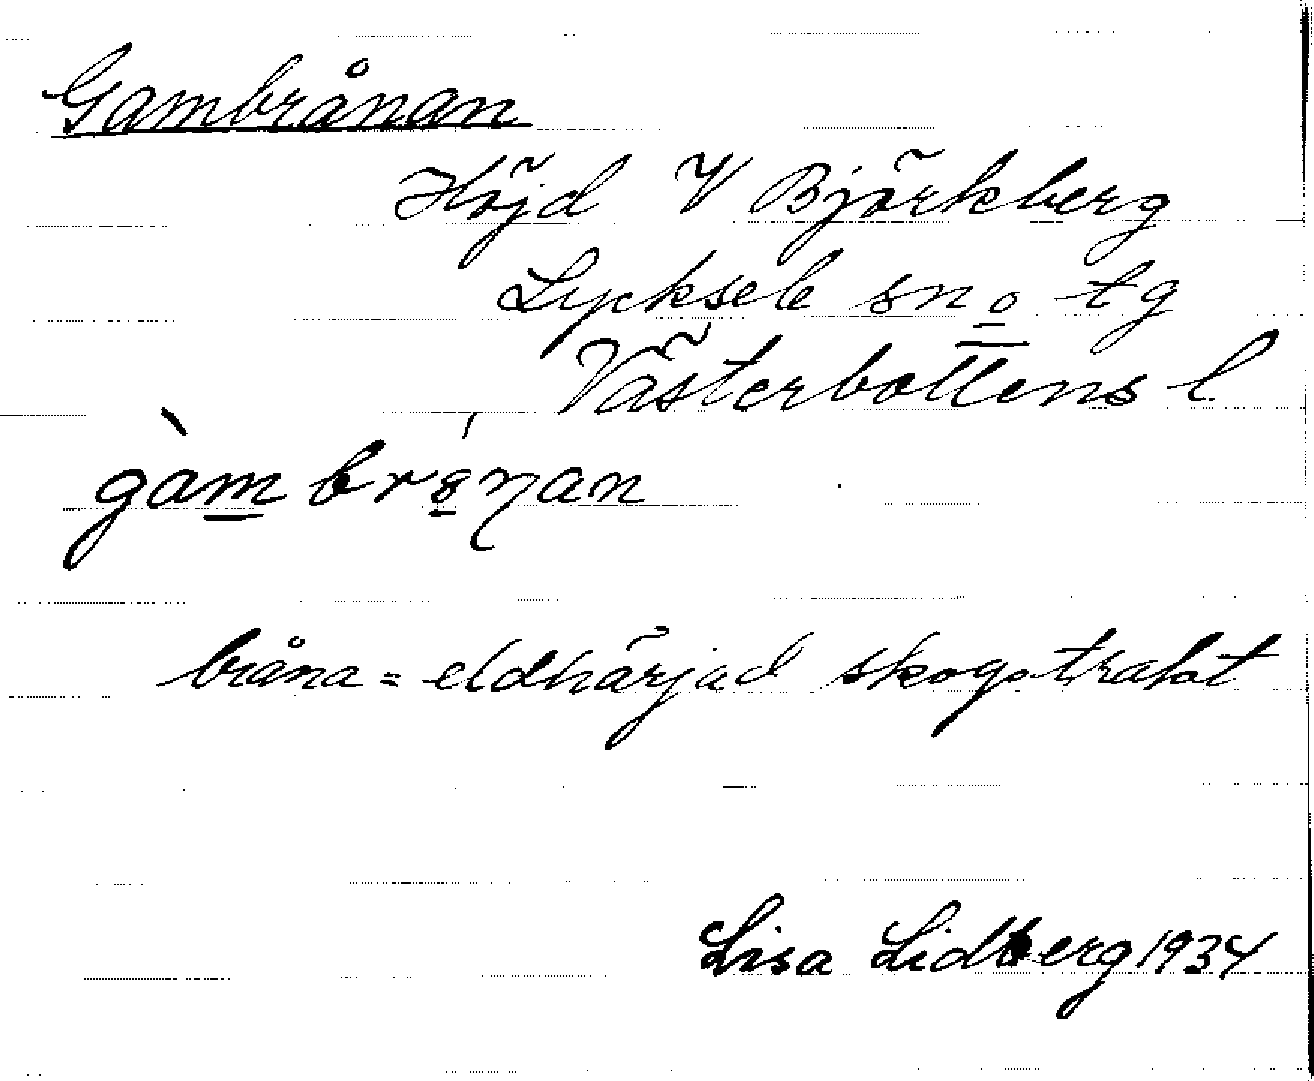 Gambrånan
Höjd V Björkberg
Lycksele sn o tg
Västerbottens l.
bråna = eldhärjad skogstrakt
Lisa Lidberg 1934